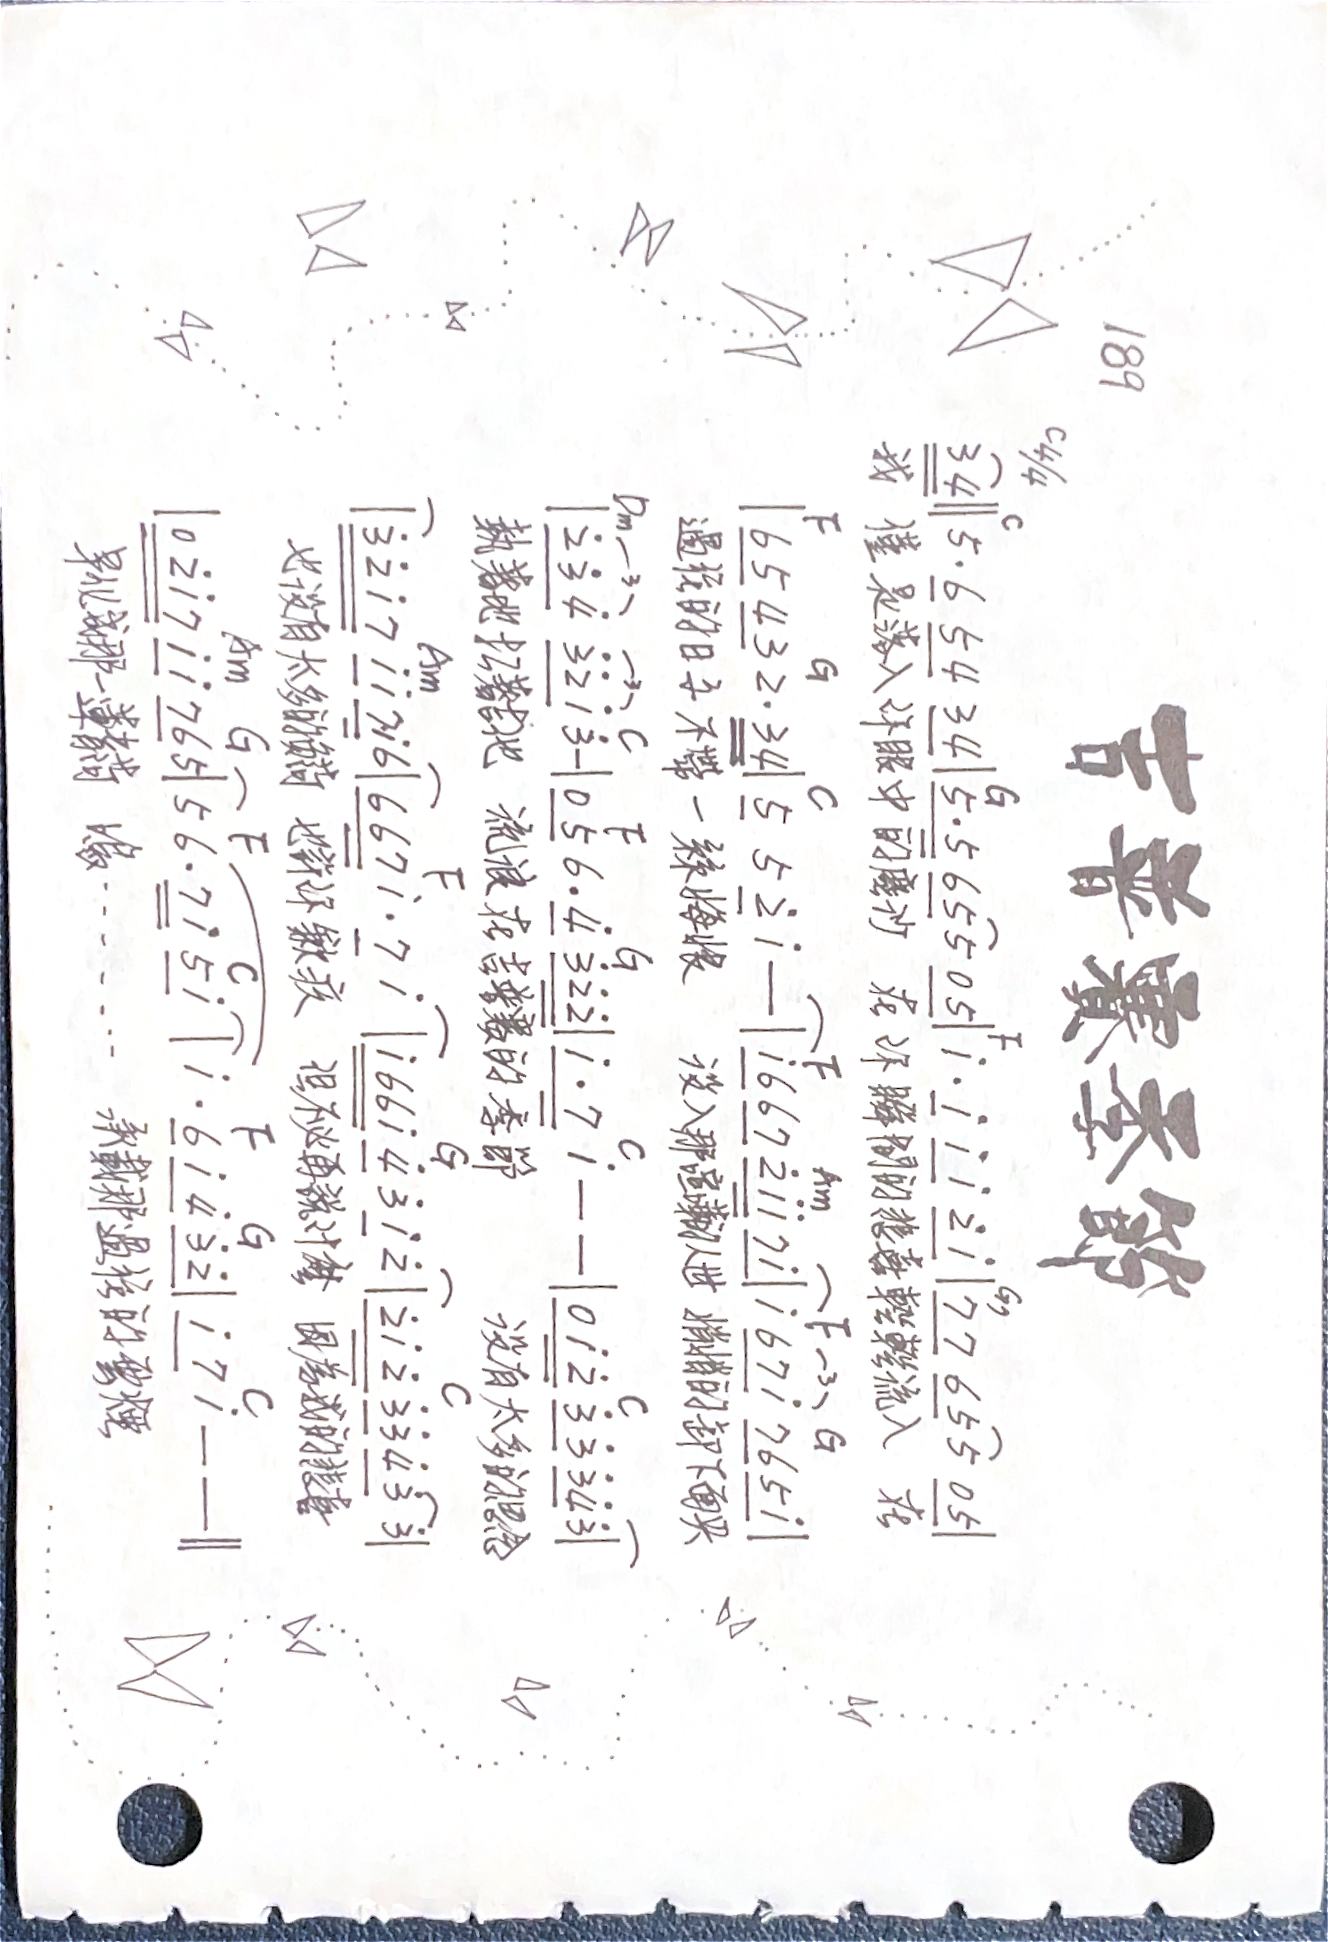 吉普賽季節
189
C4/4
C G F G7
34‖5·6 54 34|5·5 655 05|i·i i i 2̇ i|77 655 05|
我 僅是落入你眼中的塵沙 在你瞬間的悲喜輕輕流入 在
F G C F Am F 3 G
|65 43 2·34|5 5 2̇ i —|i667 2̇ii7i|i 67i 765i|
過往的日子不帶一絲悔恨 没入那喧譁的人世 悄悄的卸下面具
Dm 3 3 C F G C C
|2̇3̇4̇ 3̇2̇i 3̇—|05 6·4̇ 3̇2̇2̇|i·7 i — —|0i2̇ 3̇3̇ 3̇4̇3̇|
執著地扛著吉他 流浪在吉普賽的季節 没有太多的思念
Am F G C
|3̇2̇i7 ii7i6|667i·7 i|i66i4̇ 3i2̇|2̇i2̇ 3̇3̇4̇3̇ 3̇|
也没有太多的負荷 也許你歉疚 但不必再說什麼 因為我的悲喜
Am G F C F G C
|02̇i7 ii 765|56·7i 5i|i·6i4̇3̇2̇|i7i — —‖
早化成那一蓮青荷 嗚‧‧‧‧‧‧‧‧‧ 承載那過往的雲煙